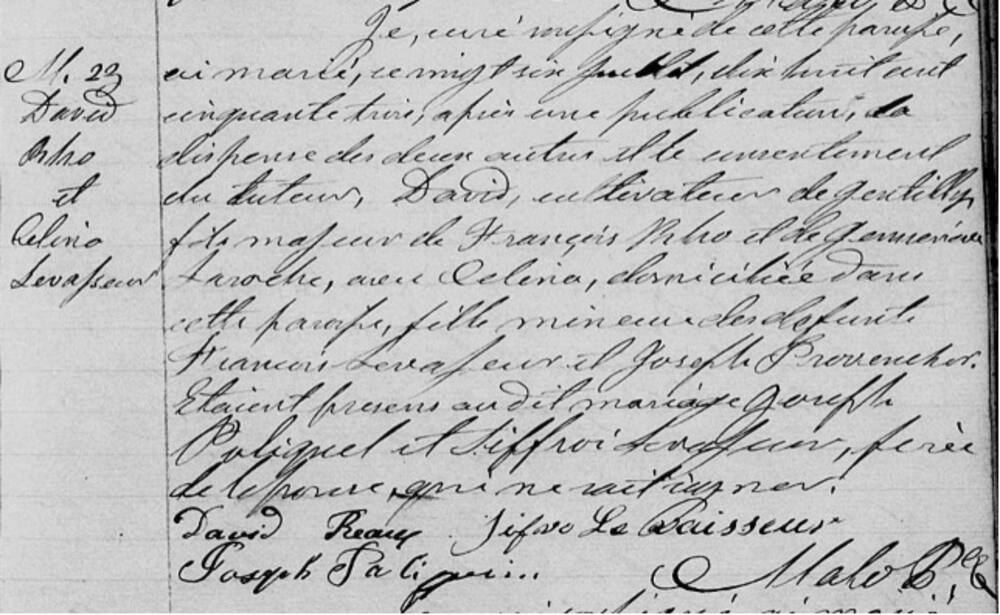 Je, curé soussigné de cette paroisse,
M. 23
David
Rho
et
Celina
Levasseur
ai marié, ce vingt six Juillet, dix huit cent
cinquante trois, après une publication, la
dispense des deux autres et le consentement
du tuteur, David, cultivateur de Gentilly,
fils majeur de François Rho et de Genevieve
Laroche, avec Celina, domiciliée dans
cette paroisse, fille mineure des defunts
François Levasseur et Joseph Provencher.
Etaient presens au dit mariage Joseph
Poliquel et Siffroi Levasseur, frère
de l'epouse, qui ne sait signer.
David Reau Sifro Le Vaisseur
Joseph
Malo Ptre